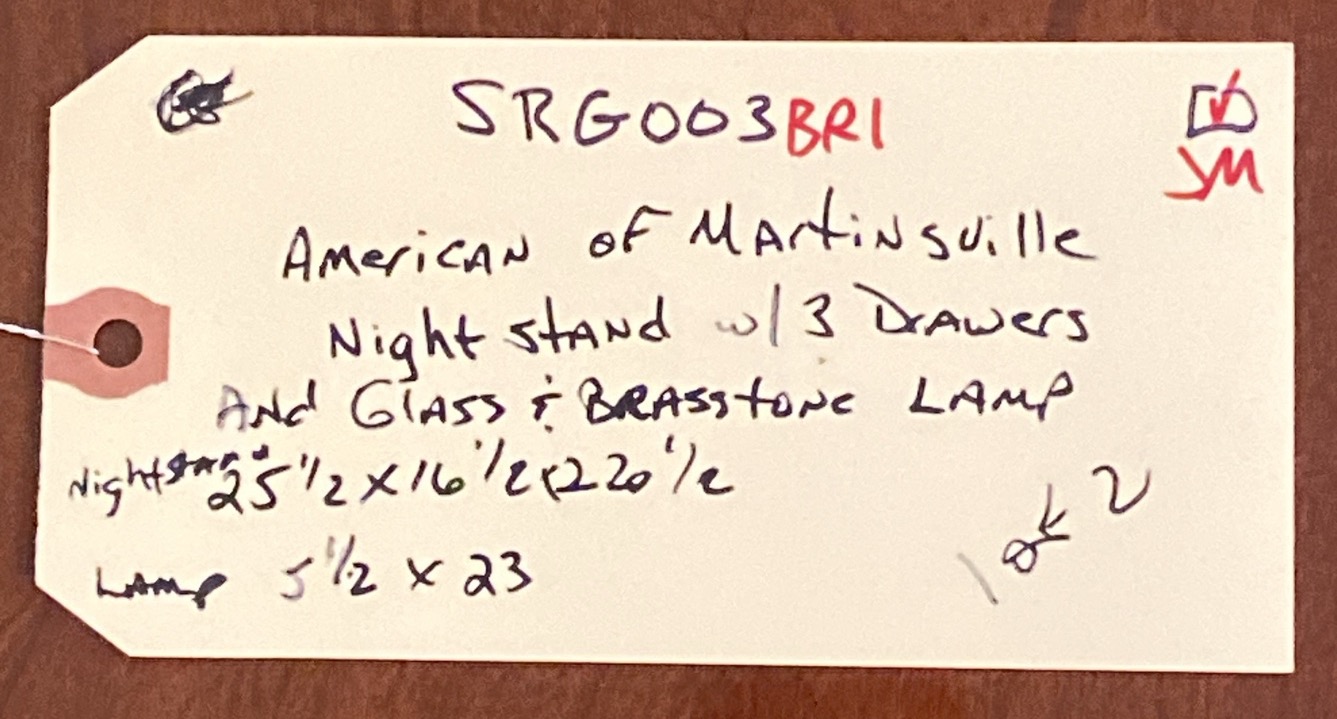 SRG003BR1
JM
American of Martinsville
Night stand w/ 3 Drawers
And Glass & Brasstone Lamp
Nightstand 25 1/2 x 16 1/2 x 220 1/2
Lamp 5 1/2 x 23
2